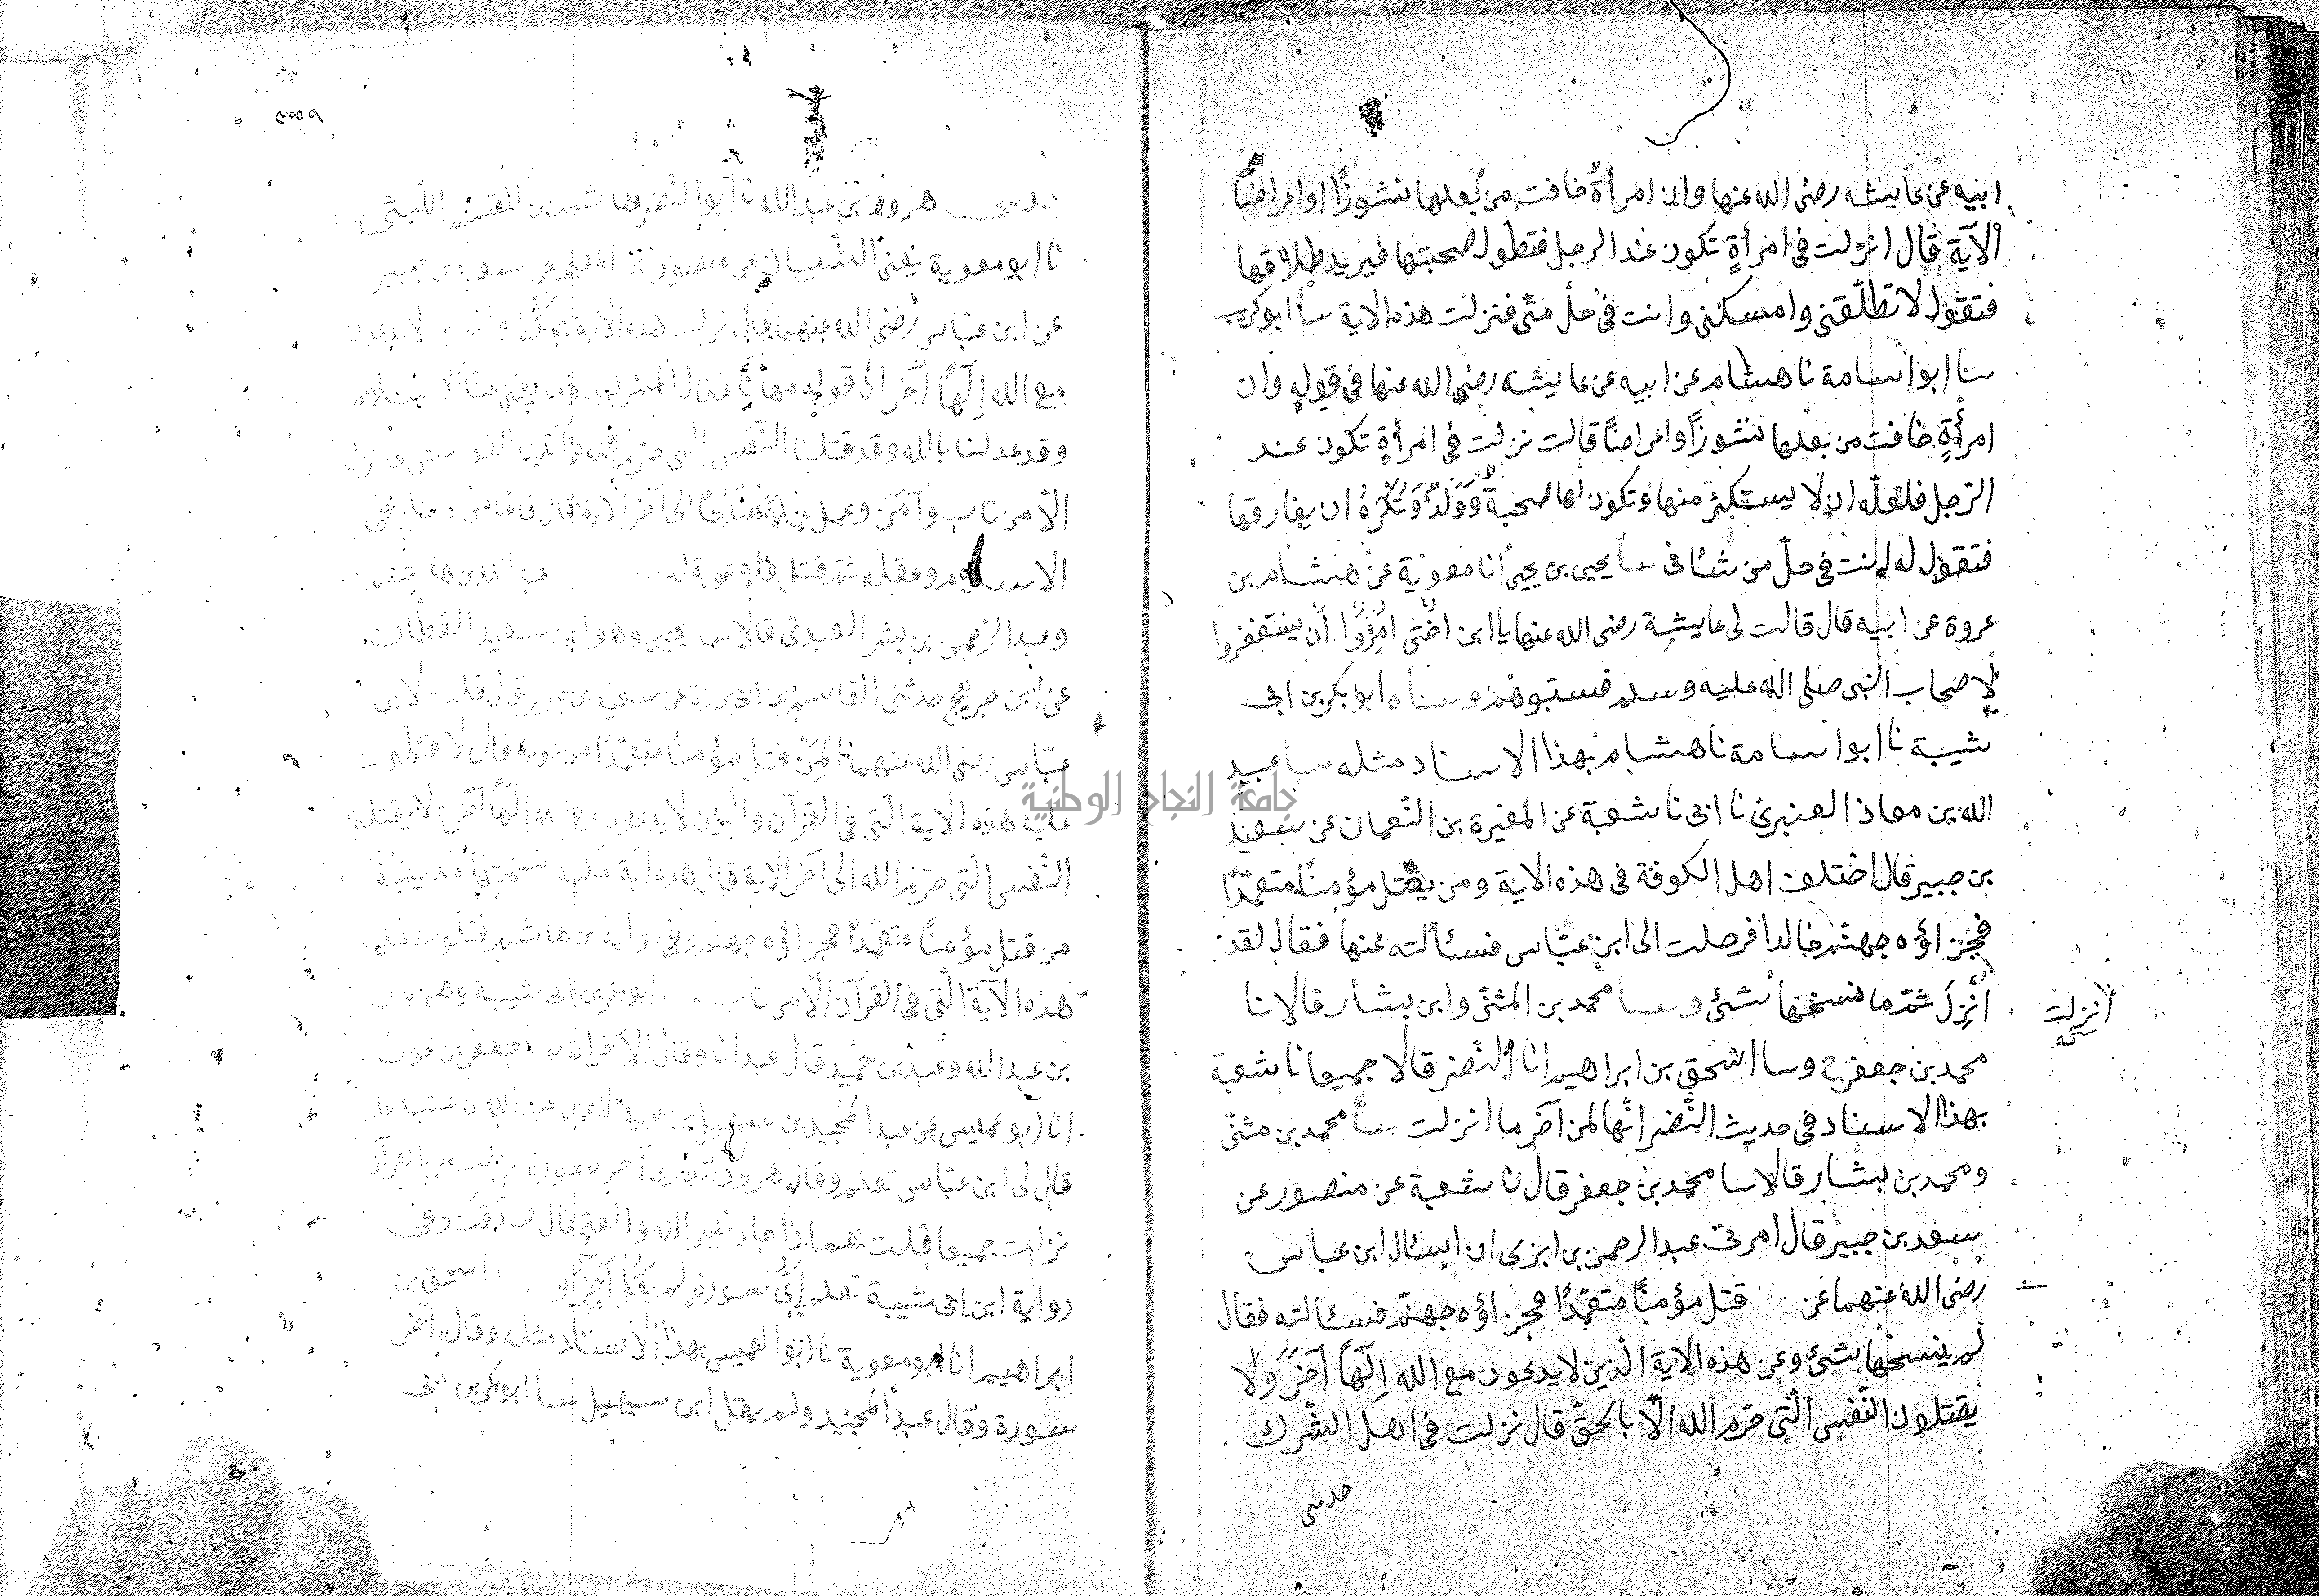 ابيه عن عايشه رضى الله عنها وان امرأة خافت من بعلها نشوزًا او اعراضًا
الآية قال انزلت فى امرأةٍ تكون عند الرجل فتطول صحبتها فيريد طلاقها
فتقول لا تطلّقنى وامسكنى وانت فى حلّ منّى فنزلت هذه الاية سا ابو كريب
سا ابو اسامة نا هشام عن ابيه عن عايشه رضى الله عنها فى قوله وان
امرأةٍ خافت من بعلها نشوزًا واعراضًا قالت نزلت فى امرأةٍ تكون عند
الرّجل فلعلّه ان لا يستكثر منها وتكون لها صحبةٌ وَوَلدٌ وَتُكْرَهُ ان يفارقها
فتقول له انت فى حلّ من شانى سا يحيى بن يحيى انا معوية عن هشام بن
عروة عن ابيه قال قالت لى عايشة رضى الله عنها يا ابن اختى اُمِرُوْا أن يستغفروا
لاصحاب النبى صلى الله عليه وسلم فسبّوهم وساه ابو بكر بن ابى
شيبة نا ابو اسامة نا هشام بهذا الاسناد مثله سا عبيد
الله بن معاذ العنبرىّ نا ابى نا شعبة عن المغيرة بن النّعمان عن سعيد
بن جبير قال اختلف اهل الكوفة فى هذه الاية ومن يقتل مؤمنًا متعمّدًا
فجزاؤه جهنّم خالدا فرحلت الى ابن عبّاس فسئالته عنها فقال لقد
اُنْزِلَ ثمّ ما نسخها شئ وسا محمد بن المثنّى وابن بشار قالا نا
انزلت
محمد بن جعفر ح وسا اسحق بن ابراهيم انا النّضر قالا جميعا نا شعبة
بهذا الاسناد فى حديث النّضر انّها لمن آخر ما انزلت سا محمد بن مثنّى
ومحمد بن بشار قالا سا محمد بن جعفر قال نا شعبة عن منصور عن
سعد بن جبير قال امرنى عبد الرحمن بن ابزى ان اسئال ابن عباس
رضى الله عنهما عن قتل مؤمنًا متعمّدًا فجزاؤه جهنّم فسئالته فقال
لم ينسخها شئ وعن هذه الاية الذين لا يدعون مع الله اِلٰهًا آخَرَ وَلا
يقتلون النّفس الّتى حرّم الله الّا بالحقّ قال نزلت فى اهل الشّرك
حدسى
حدسى هرون بن عبد الله نا ابو النّضر هاشم بن القسم اللّيثى
نا ابو معوية يعنى الشّيبان عن منصور ابن المعتمر عن سعيد بن جبير
عن ابن عبّاس رضى الله عنهما قال نزلت هذه الاية بمكّة والذين لا يدعون
مع الله اِلٰهًا آخر الى قوله مهانًا فقال المشركون وما يغنى عنّا الاسلام
وقد عدلنا بالله وقد قتلنا النّفس الّتى حرّم الله وآتينا الفواحش فانزل
الّا من تاب وآمَنَ وعمل عملًا صَالِحًا الى آخر الاية قال فامّا من دخل فى
الاسلام وعقله ثمّ قتل فلا توبة له عبد الله بن هاشم
وعبد الرّحمن بن بشر العبدى قالا سا يحيى وهو ابن سعيد القطّان
عن ابن جريج حدثنى القاسم بن ابى بزرة عن سعيد بن جبير قال قلت لابن
عبّاس رضى الله عنهما المن قتل مؤمنًا متعمّدًا من توبة قال لا فتلوت
عليه هذه الاية الّتى فى القرآن والّذين لا يدعون مع الله اِلٰهًا آخر ولا يقتلون
النّفس الّتى حرّم الله الى آخر الاية قال هذه آية مكية نسختها مدينيّة
من قتل مؤمنًا متعمّدًا فجزاؤه جهنّم وفى رواية بن هاشم فتلوت عليه
هذه الآية الّتى فى القرآن الّا من تاب ابو بكر بن ابى شيبة وهرون
بن عبد الله وعبد بن حميد قال عبد انا وقال الآخران سا جعفر بن عون
انا ابو عميس عن عبد المجيد بن سهيل عن عبيد الله بن عبد الله بن عتبة قال
قال لى ابن عبّاس تعلم وقال هرون تدرى آخر سورة نزلت من القرآن
نزلت جميعا قلت نعم اذا جاء نصر الله والفتح قال صدقت وفى
رواية ابن ابى شيبة تعلم أىّ سورةٍ لم يَقُلْ آخِر وسا اسحق بن
ابراهيم انا ابو معوية نا ابو العميس بهذا الاسناد مثله وقال آخر
سورة وقال عبد المجيد ولم يقل ابن سهيل سا ابو بكر بن ابى
جامعة النجاح الوطنية